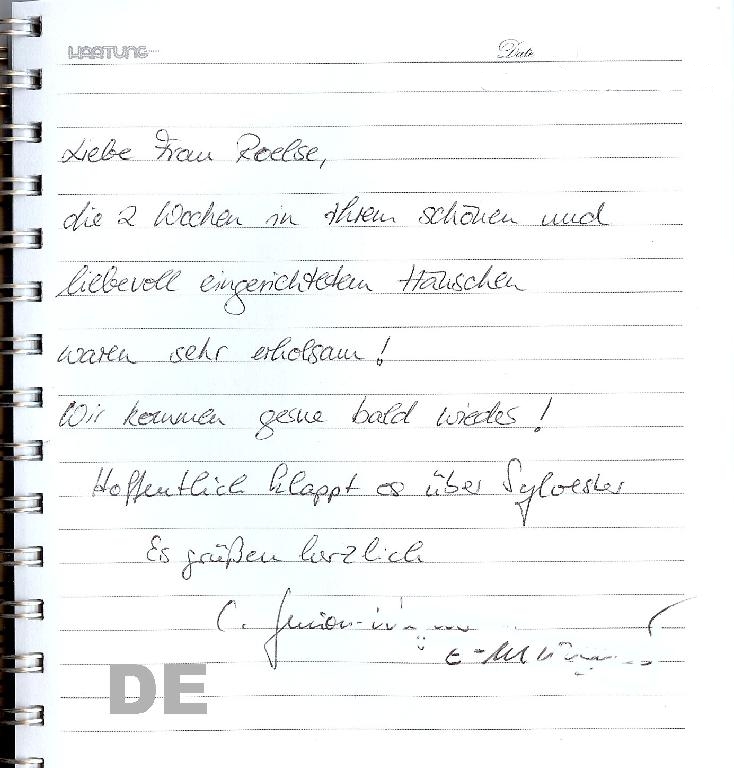 HARTUNG Date
Liebe Frau Roelse,
die 2 Wochen in Ihrem schönen und
liebevoll eingerichtetem Häuschen
waren sehr erholsam!
Wir kommen gerne bald wieder!
Hoffentlich klappt es über Sylvester
Es grüßen herzlich
C.
DE